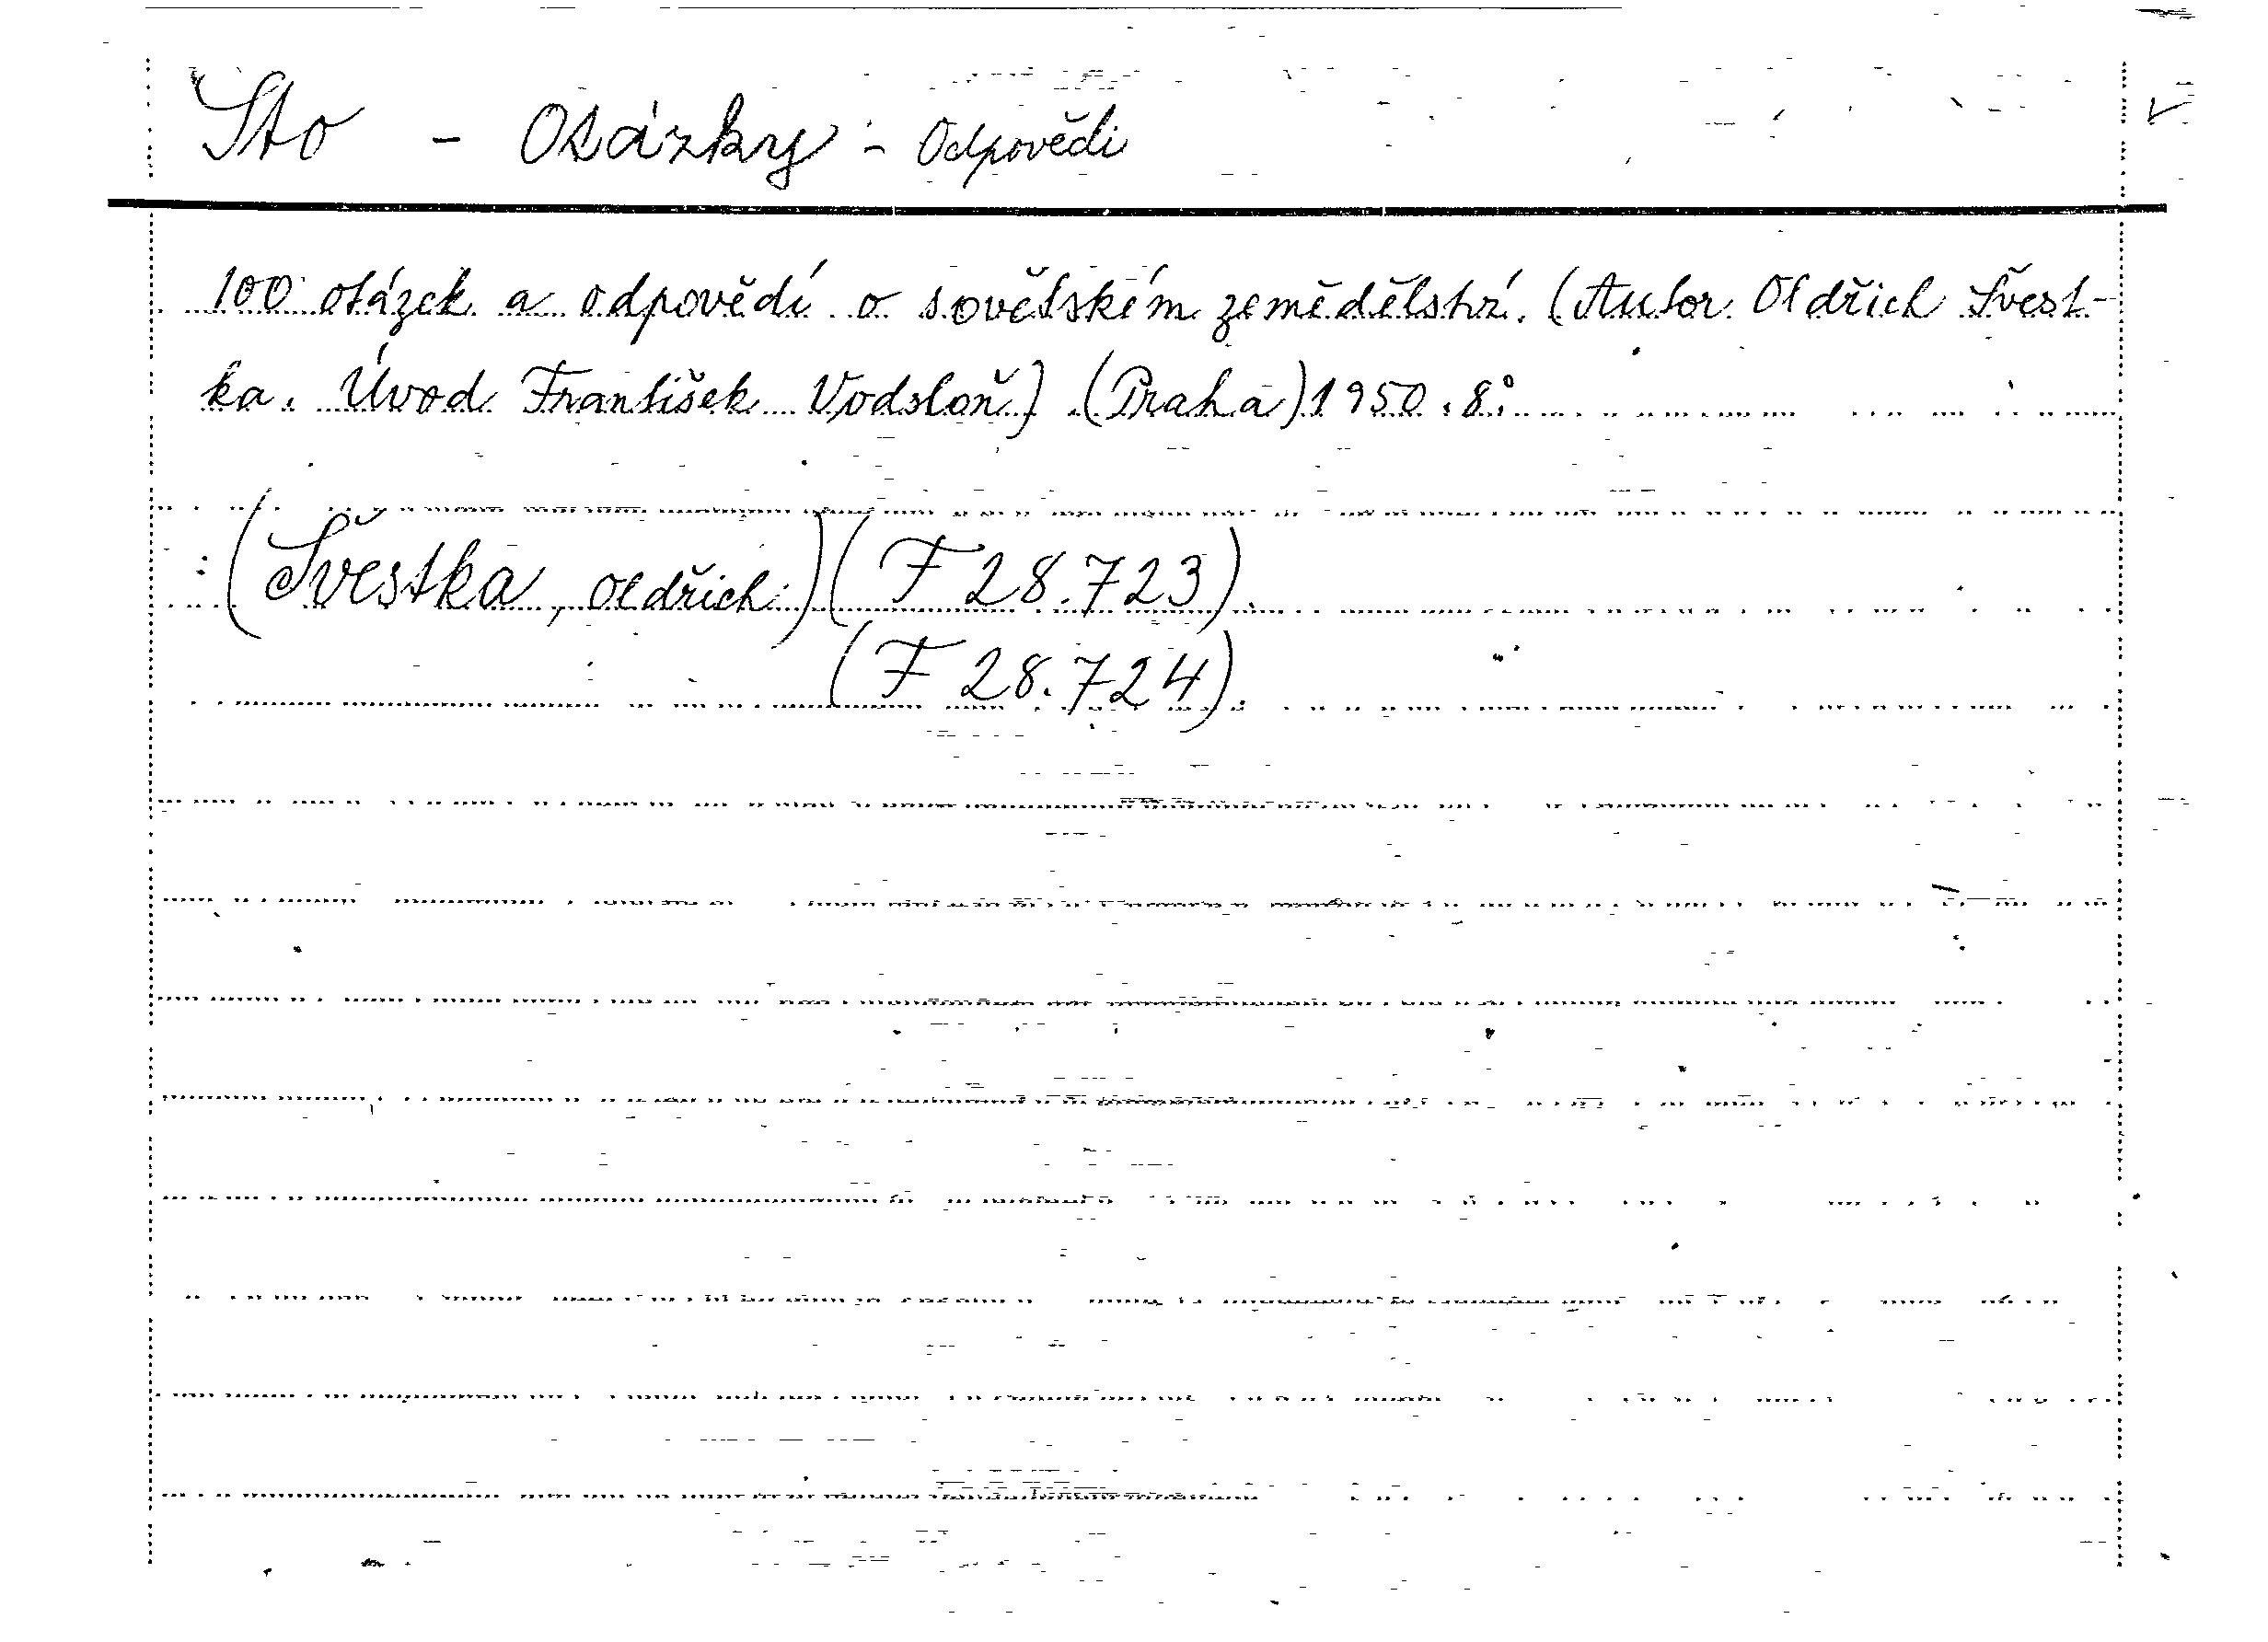 Sto - Otázky - Odpovědi
100 otázek a odpovědí o sovětském zemědělství. (Autor Oldřich Švest-
ka. Úvod František Vodsloň) (Praha) 1950. 8°
: (Švestka, Oldřich) (F 28.723).
(F 28.724).